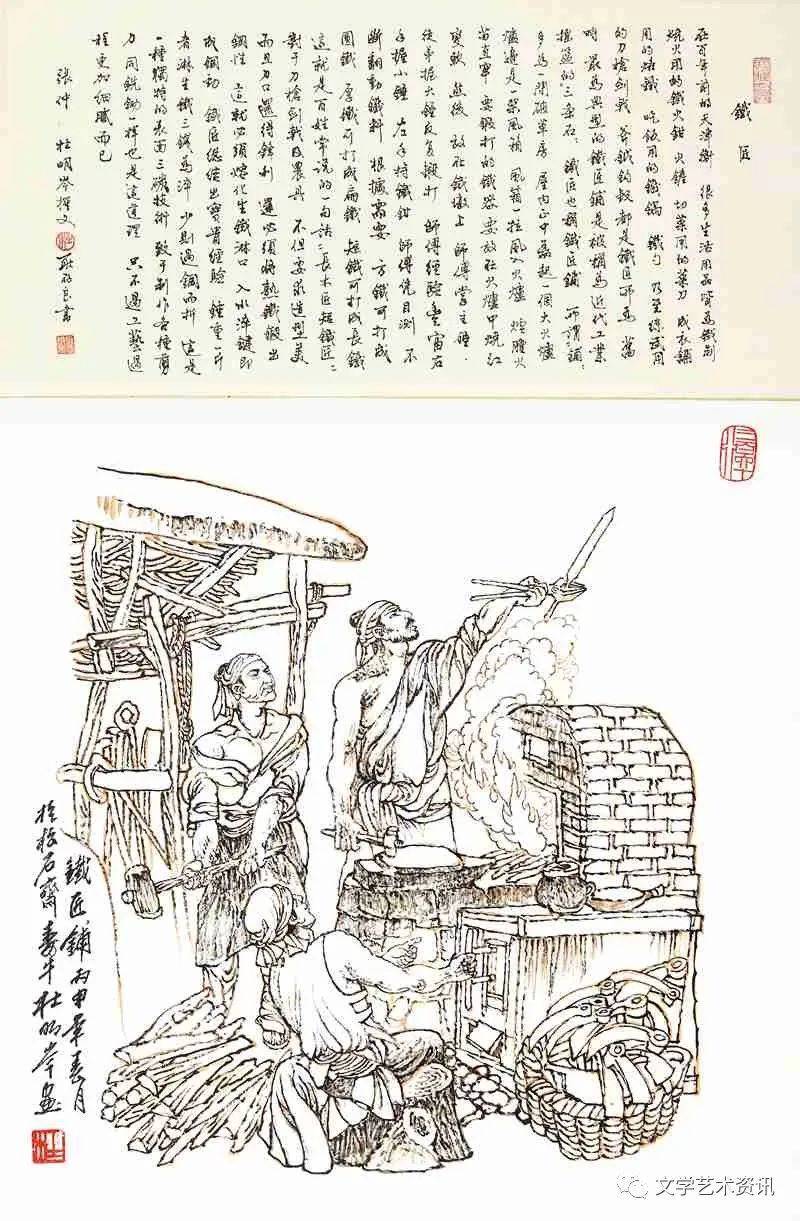 鐵匠
在百年前的天津衛 很多生活用品皆為鐵制
燒火用的鐵火鉗 火鏟 切菜用的菜刀 成衣鋪
用的烙鐵 吃飯用的鐵鍋 鐵勺 乃至練武用
的刀槍劍戟 斧鉞鈎 都是鐵匠所為 當
時 最為典型的鐵匠鋪是被稱為近代工業
搖籃的三条石 鐵匠也稱鐵匠鋪 所謂鋪
多為一間破草房 屋内正中築起一個大火爐
爐邊是一架風箱 風箱一拉風入火爐 爐膛火
苗直竄 要鍛打的鐵器要放在火爐中燒红
變軟 然後 放在鐵墩上 師傅掌主錘
徒弟握大錘反复鍛打 師傅經驗豐富右
手握小錘 左手持鐵鉗 師傅憑目測 不
断翻動鐵料 根據需要 方鐵可打成
圓鐵 厚鐵可打成扁鐵 短鐵可打成長鐵
這就是百姓常說的一句話 長木匠短鐵匠
對于刀槍劍戟及農具 不但要求造型美
而且刀口還得鋒利 還必須將熟鐵鍛出
鋼性 這就必須熔化生鐵淋口 入水淬鍵即
成鋼 鐵匠總结出寶貴經驗 錘重一斤
者淋生鐵三錢為淬 少則過鋼而折 這是
一種獨特的表面三碳技術 致于制作各種剪
刀同銑鋤一样也是這道理 只不過工藝過
程更加細膩而已
張仲 杜明岑撰文
鐵匠鋪 丙申年春月
杜明岑畫
文学艺术资讯